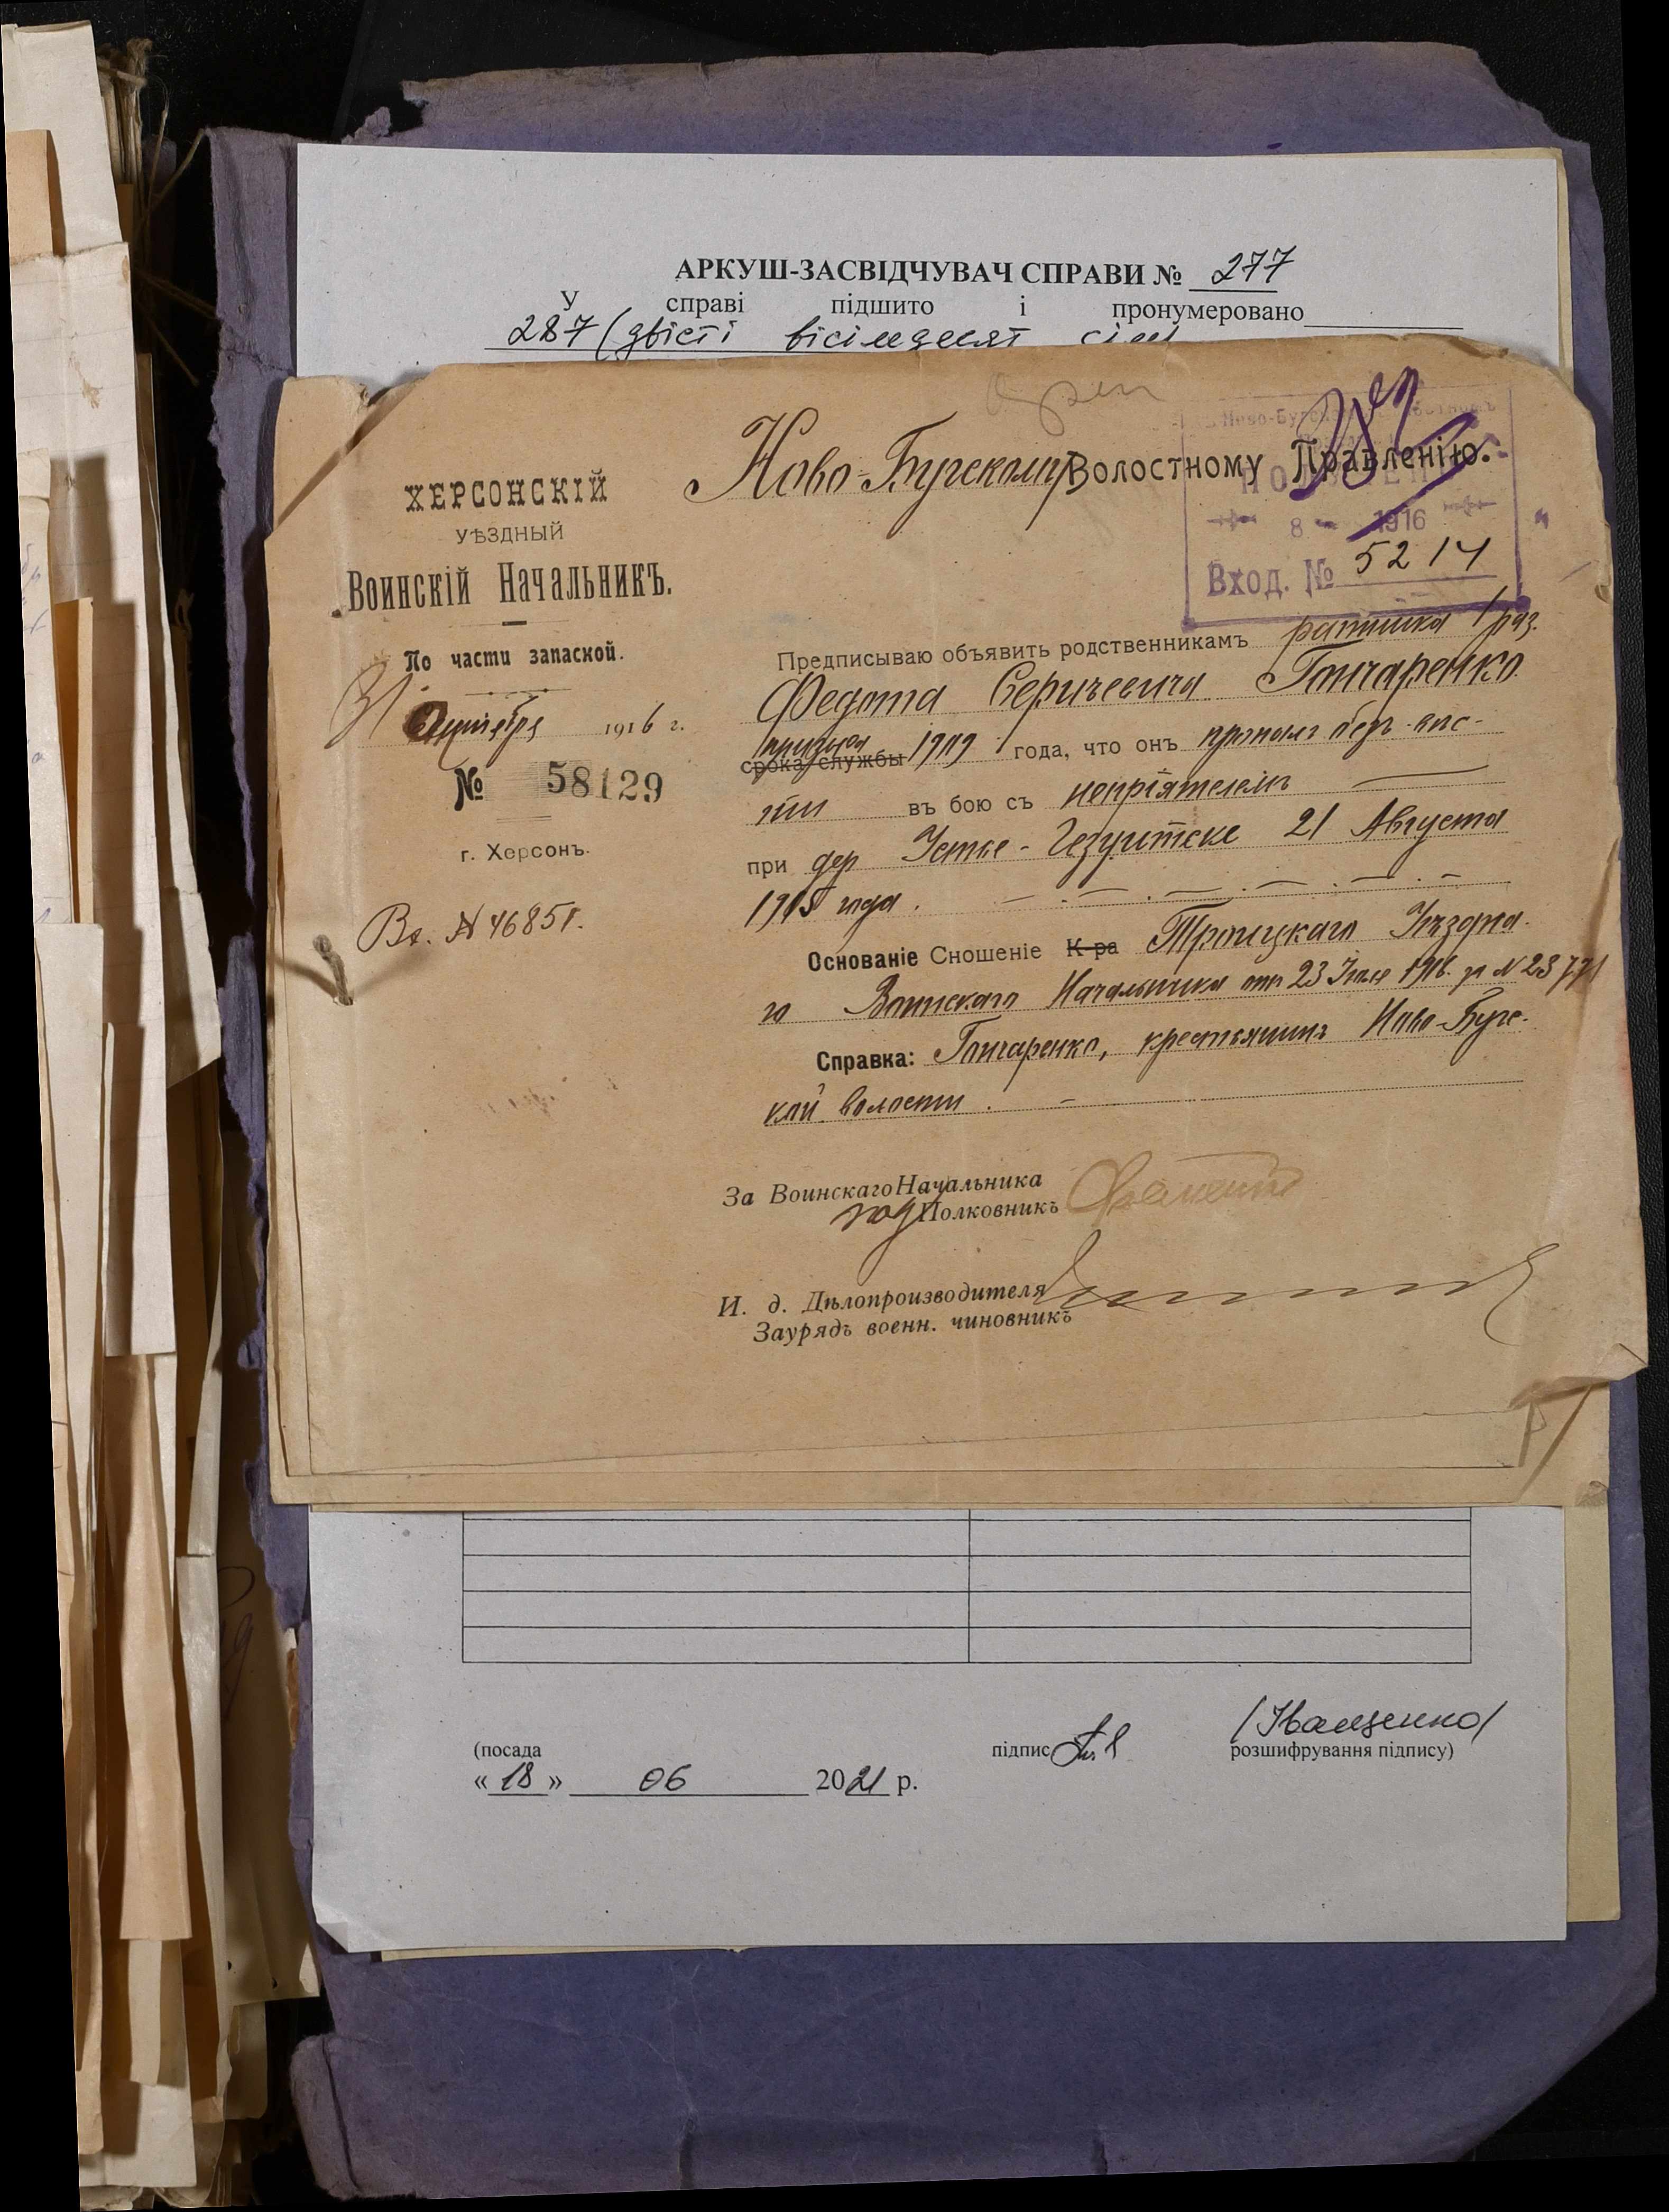 АРКУШ-ЗАСВІДЧУВАЧ СПРАВИ № 277
У справі підшито і пронумеровано
287 (двісті вісімдесят сім
Ново-Бугскому Волостному Правленію.
1916
Вход. № 5214
ХЕРСОНСКІЙ
УѢЗДНЫЙ
ВОИНСКІЙ НАЧАЛЬНИКЪ.
По части запасной.
31 Октября 1916 г.
№ 58129
г. Херсонъ.
Вх. № 46851.
Предписываю объявить родственникамъ ратника 1 раз.
Федота Сергѣевича Гончаренко
призыва
срока службы 1909 года, что онъ пропалъ безъ вѣс-
ти въ бою съ непріятелемъ
при дер Устье-Іезуитске 21 Августа
1915 года.
Основаніе Сношеніе К-ра Троицкаго Уѣздна-
го Воинскаго Начальника отъ 23 Іюля 1916. за № 23771
Справка: Гончаренко, крестьянинъ Ново-Бугс-
кой волости.
За Воинскаго Начальника
под Полковникъ
И. д. Дѣлопроизводителя
Заурядъ военн. чиновникъ
(посада підпис розшифрування підпису)
(Іващенко)
« 18 » 06 2021 р.